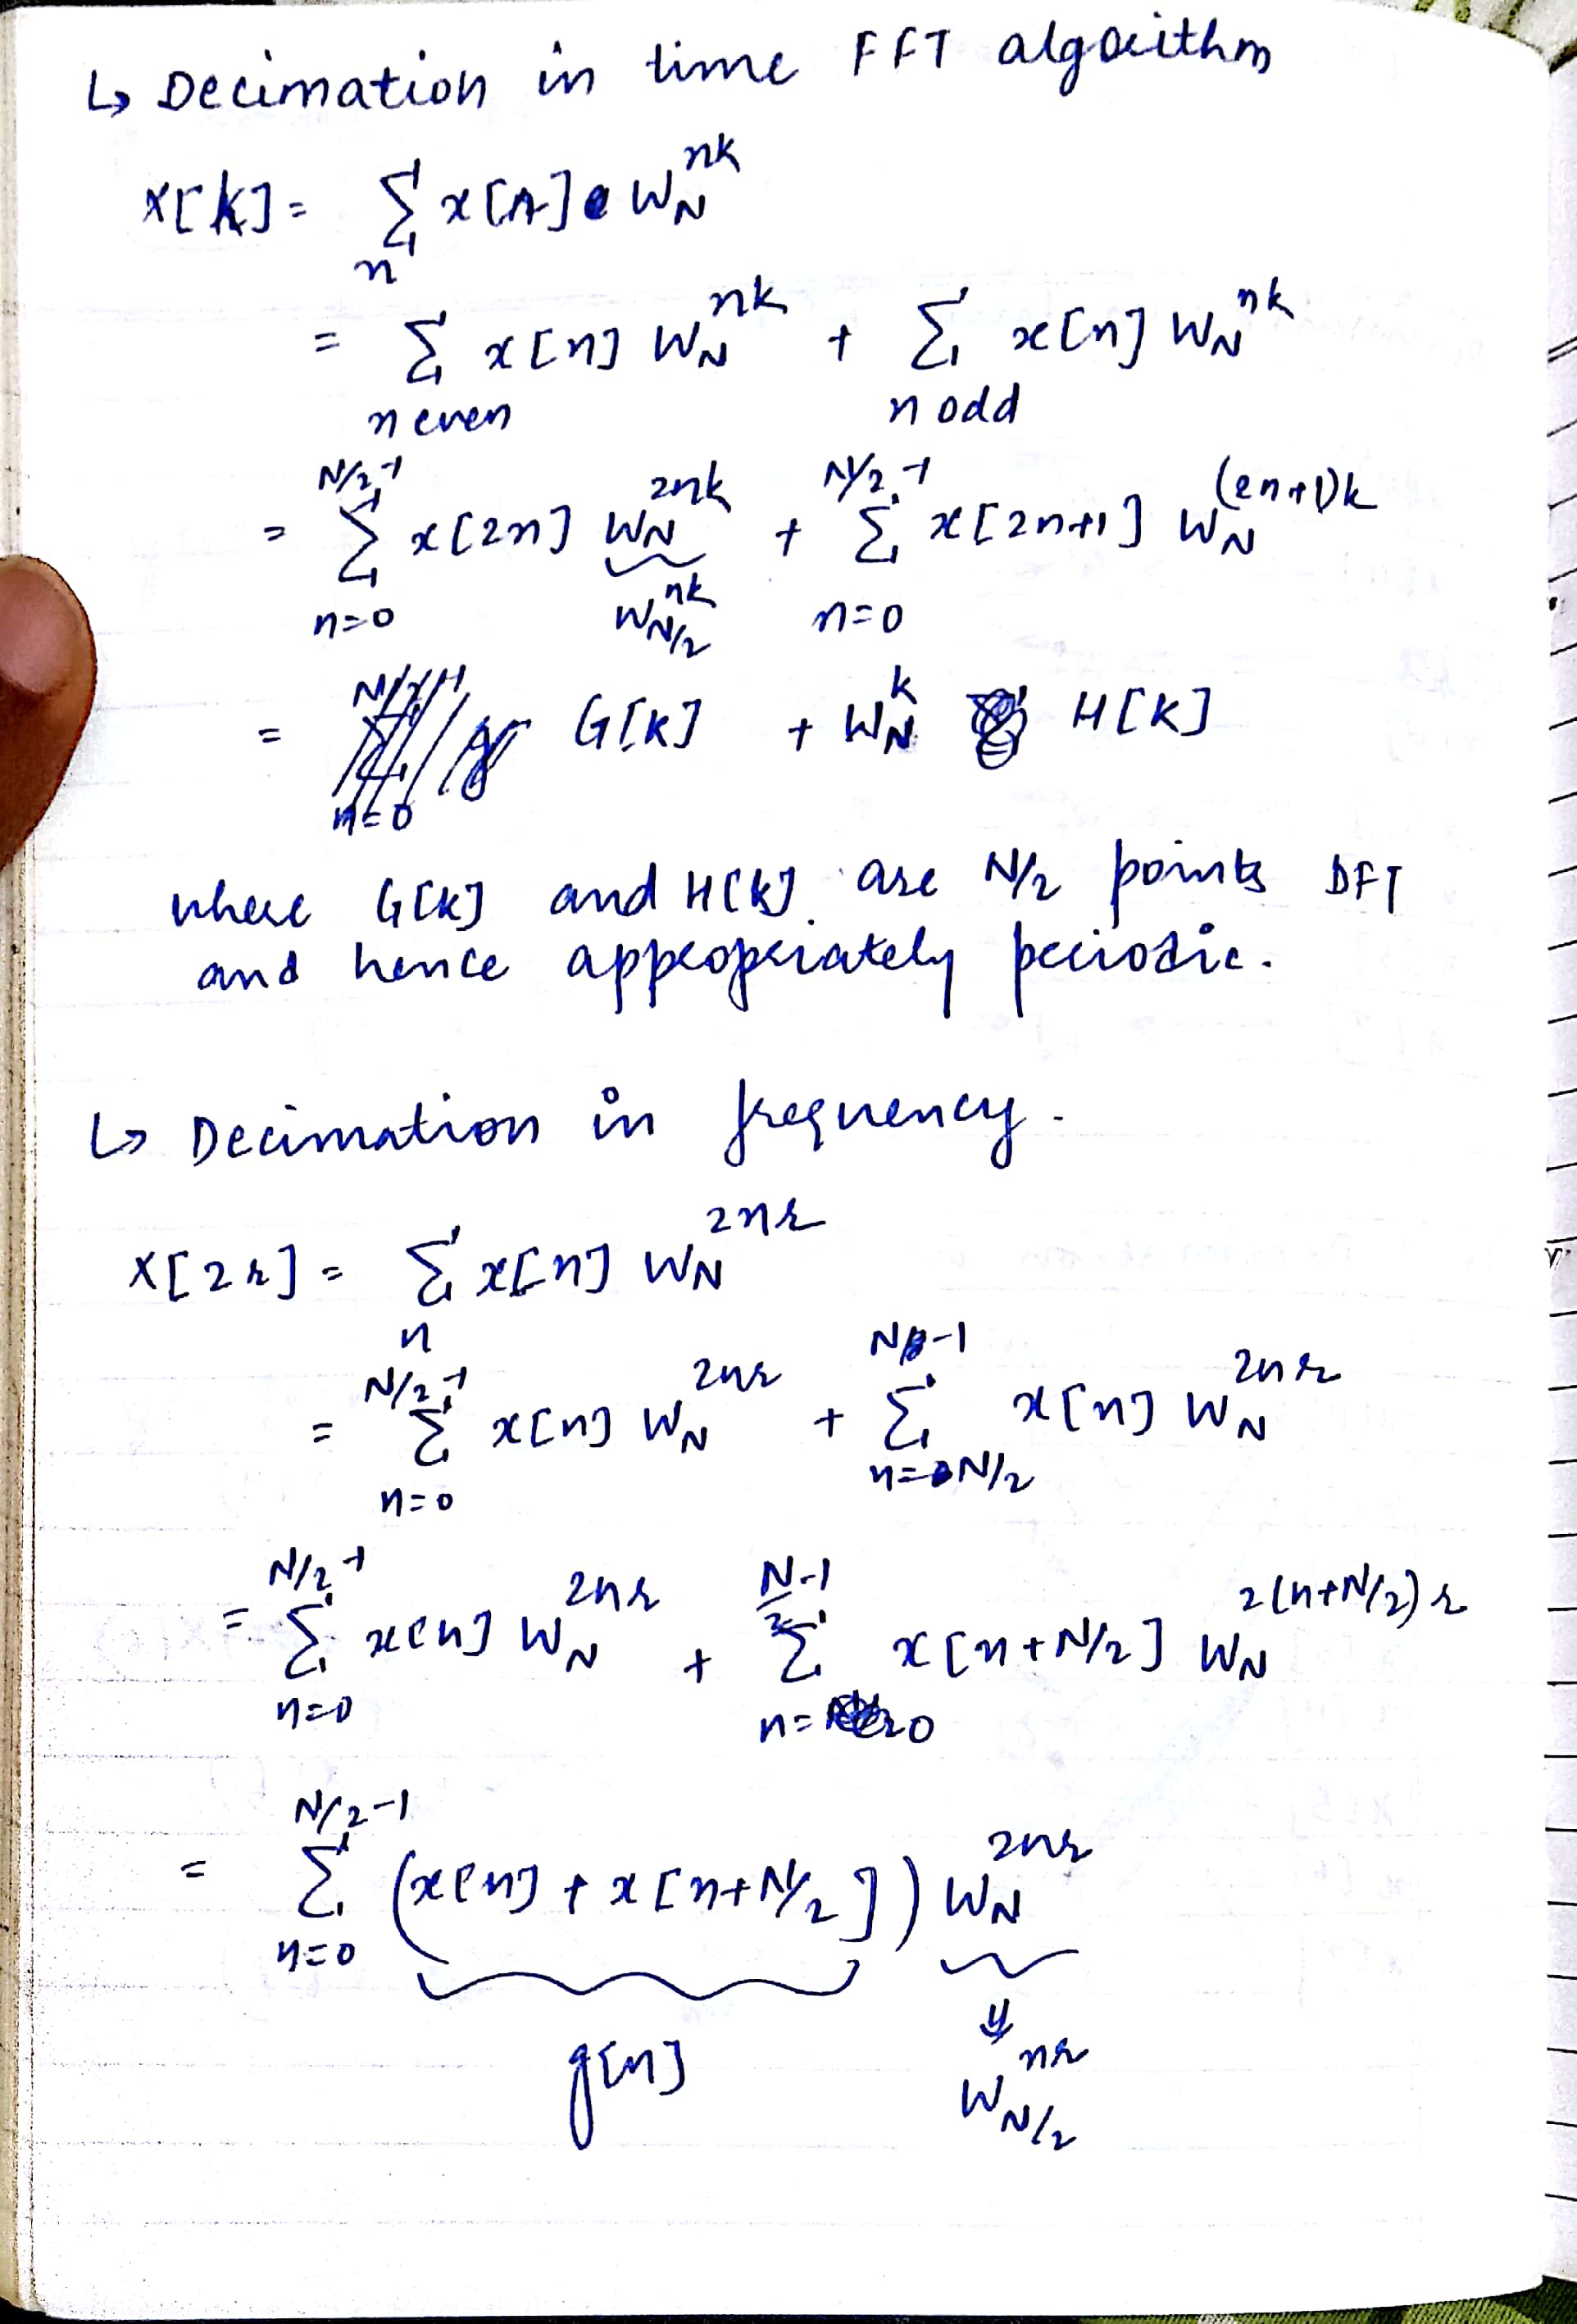 ↳ Decimation in time FFT algorithm
X[k] = Σ_n x[n] W_N^{nk}
= Σ_{n even} x[n] W_N^{nk} + Σ_{n odd} x[n] W_N^{nk}
= Σ_{n=0}^{N/2-1} x[2n] W_N^{2nk} + Σ_{n=0}^{N/2-1} x[2n+1] W_N^{(2n+1)k}
W_{N/2}^{nk}
= G[k] + W_N^k H[k]
where G[k] and H[k] are N/2 points DFT
and hence appropriately periodic.
↳ Decimation in frequency.
X[2r] = Σ_n x[n] W_N^{2nr}
= Σ_{n=0}^{N/2-1} x[n] W_N^{2nr} + Σ_{n=N/2}^{N-1} x[n] W_N^{2nr}
= Σ_{n=0}^{N/2-1} x[n] W_N^{2nr} + Σ_{n=0}^{N/2-1} x[n+N/2] W_N^{2(n+N/2)r}
= Σ_{n=0}^{N/2-1} (x[n] + x[n+N/2]) W_N^{2nr}
g[n] ⇓ W_{N/2}^{nr}